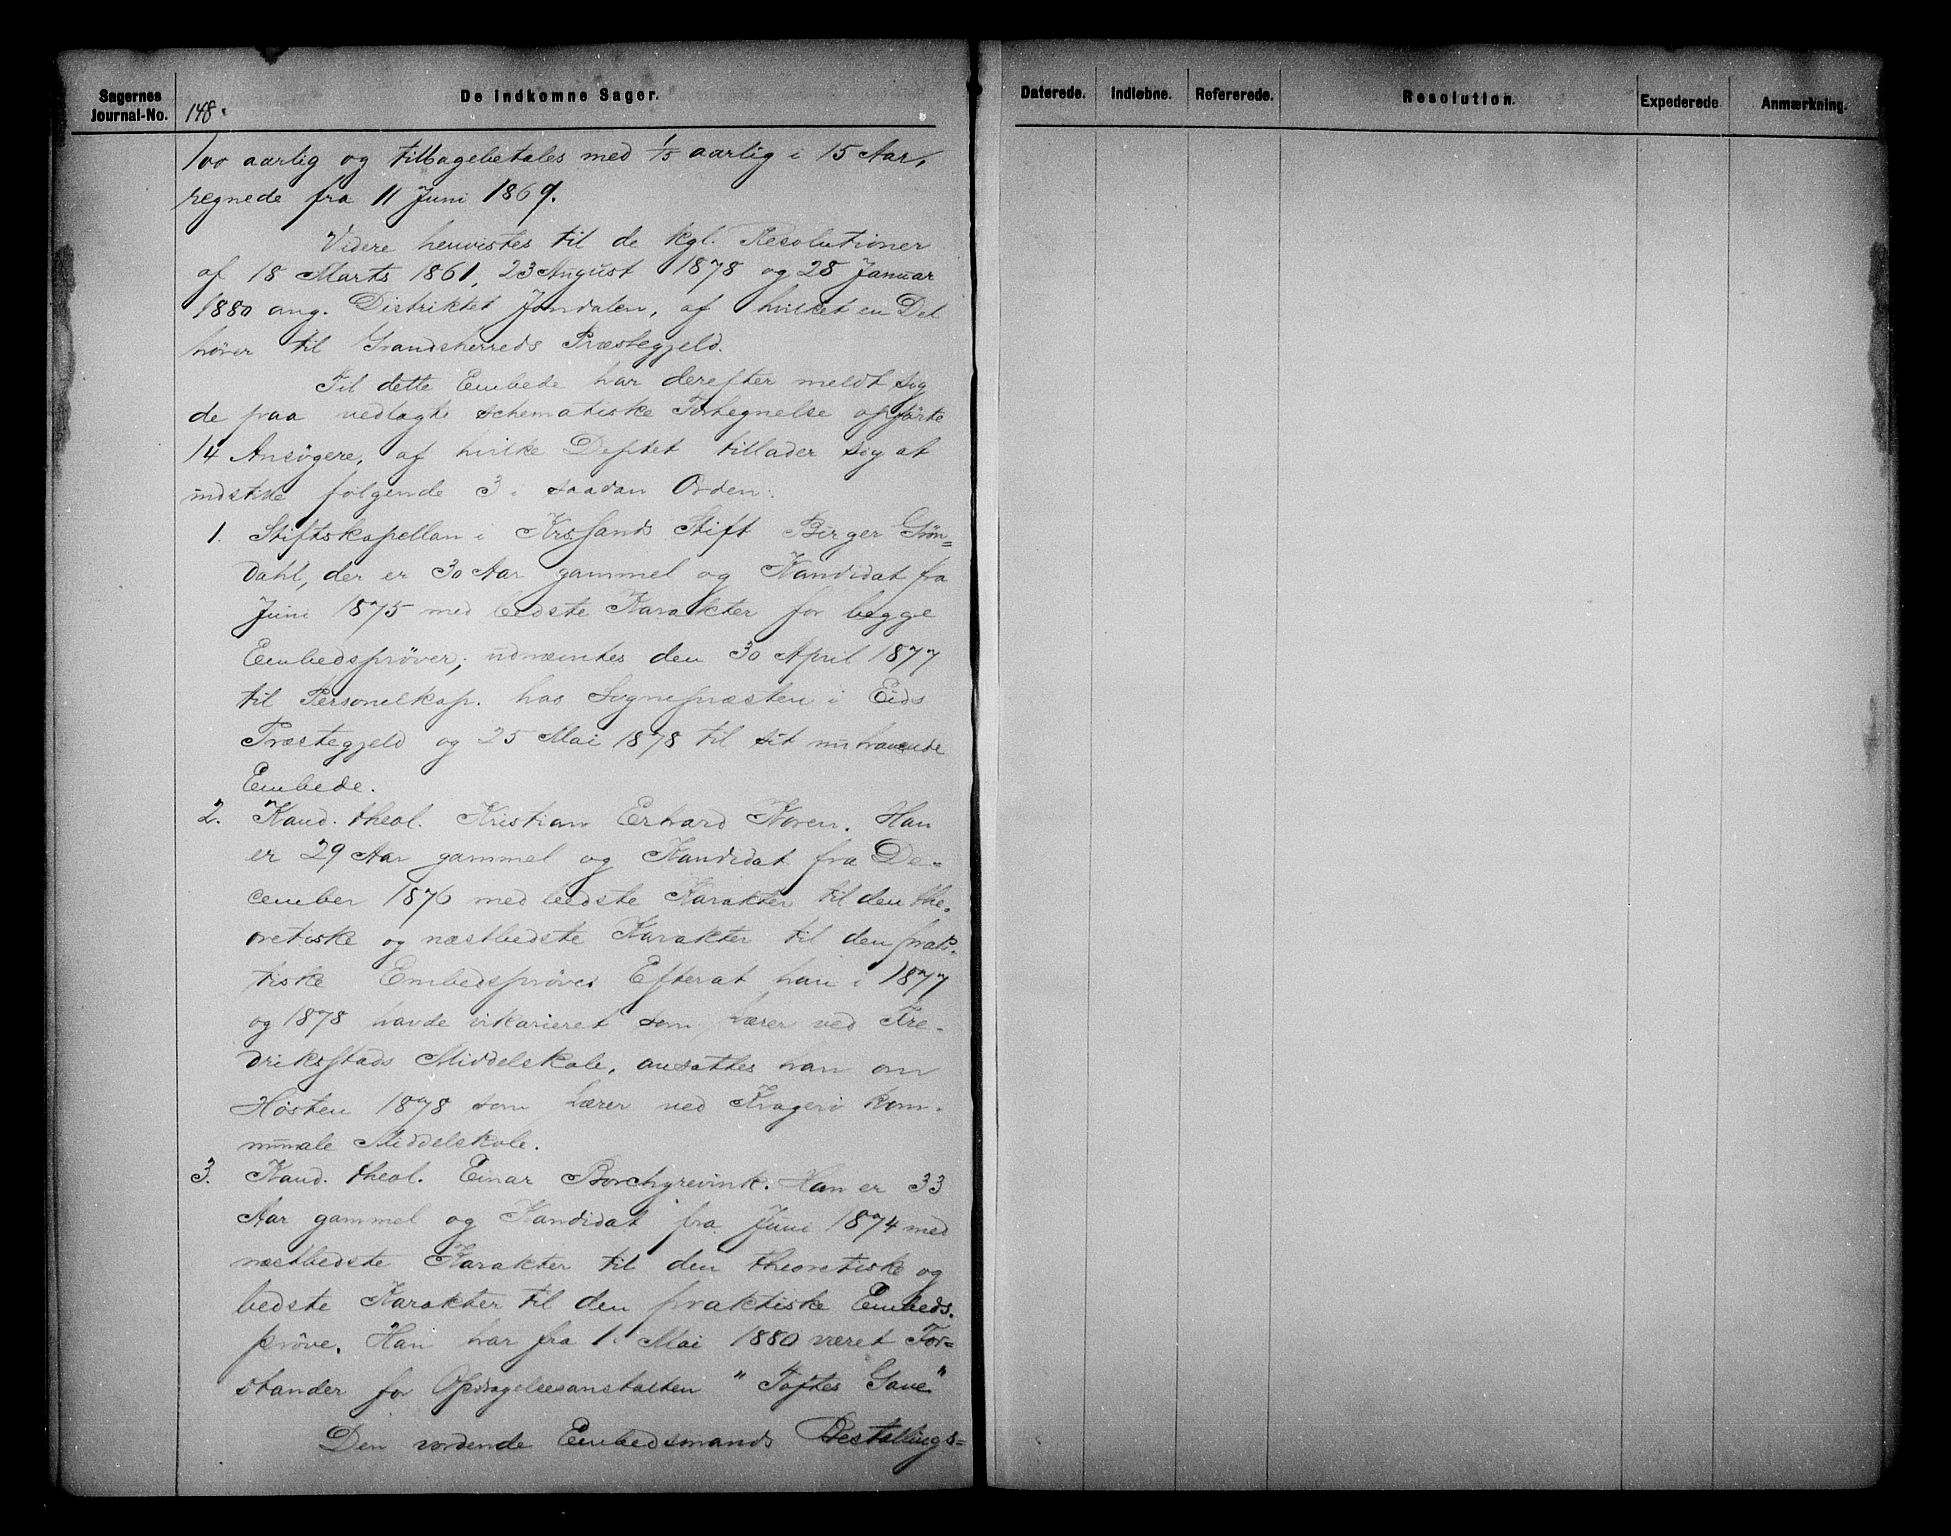 Sagernes
Journal-No.
De indkomne Sager.
148.
100 aarlig og tilbagebetales med 1/15 aarlig i 15 Aar,
regnede fra 11 Juni 1869.
Videre henvistes til de kgl. Resolutioner
af 18 Marts 1861, 23 August 1878 og 28 Januar
1880 ang. Distriktet Jondalen, af hvilket en Del
hører til Gransherreds Præstegjeld.
Til dette Embede har derefter meldt sig
de paa vedlagte schematiske Fortegnelse opførte
14 Ansøgere, af hvilke Deptet tillader sig at
indstille følgende 3 i saadan Orden:
1. Stiftskapellan i Krssands Stift Birger Grøn-
dahl, der er 30 Aar gammel og Kandidat fra
Juni 1875 med bedste Karakter for begge
Embedsprøver; udnævntes den 30 April 1877
til Personelkap. hos Sognepræsten i Eids
Præstegjeld og 25 Mai 1878 til sit nuhavende
Embede.
2. Kand. theol. Kristian Erhard Koren. Han
er 29 Aar gammel og Kandidat fra De-
cember 1876 med bedste Karakter til den the-
oretiske og næstbedste Karakter til den prak-
tiske Embedsprøve. Efterat han i 1877
og 1878 havde vikarieret som Lærer ved Fre-
drikstads Middelskole, ansattes han om
Høsten 1878 som Lærer ved Kragerø kom-
munale Middelskole.
3. Kand. theol. Einar Borchgrevink. Han er 33
Aar gammel og Kandidat fra Juni 1874 med
næstbedste Karakter til den theoretiske og
bedste Karakter til den praktiske Embeds-
prøve. Han har fra 1. Mai 1880 været For-
stander for Opdragelsesanstalten "Toftes Gave"
Den vordende Embedsmands Bestallings-
Daterede.
Indløbne.
Refererede.
Resolution.
Expederede
Anmærkning.